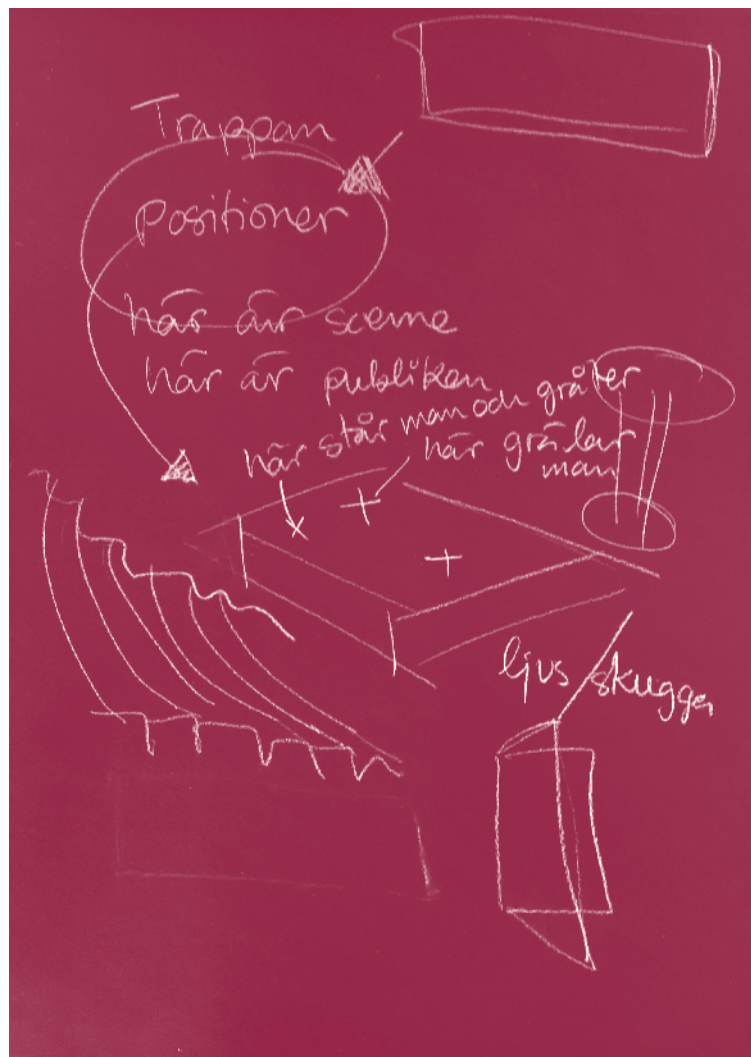 Trappan
Positioner
här är scenne
här är publiken
här står man och gråter
här grälar
man
ljus/skugga